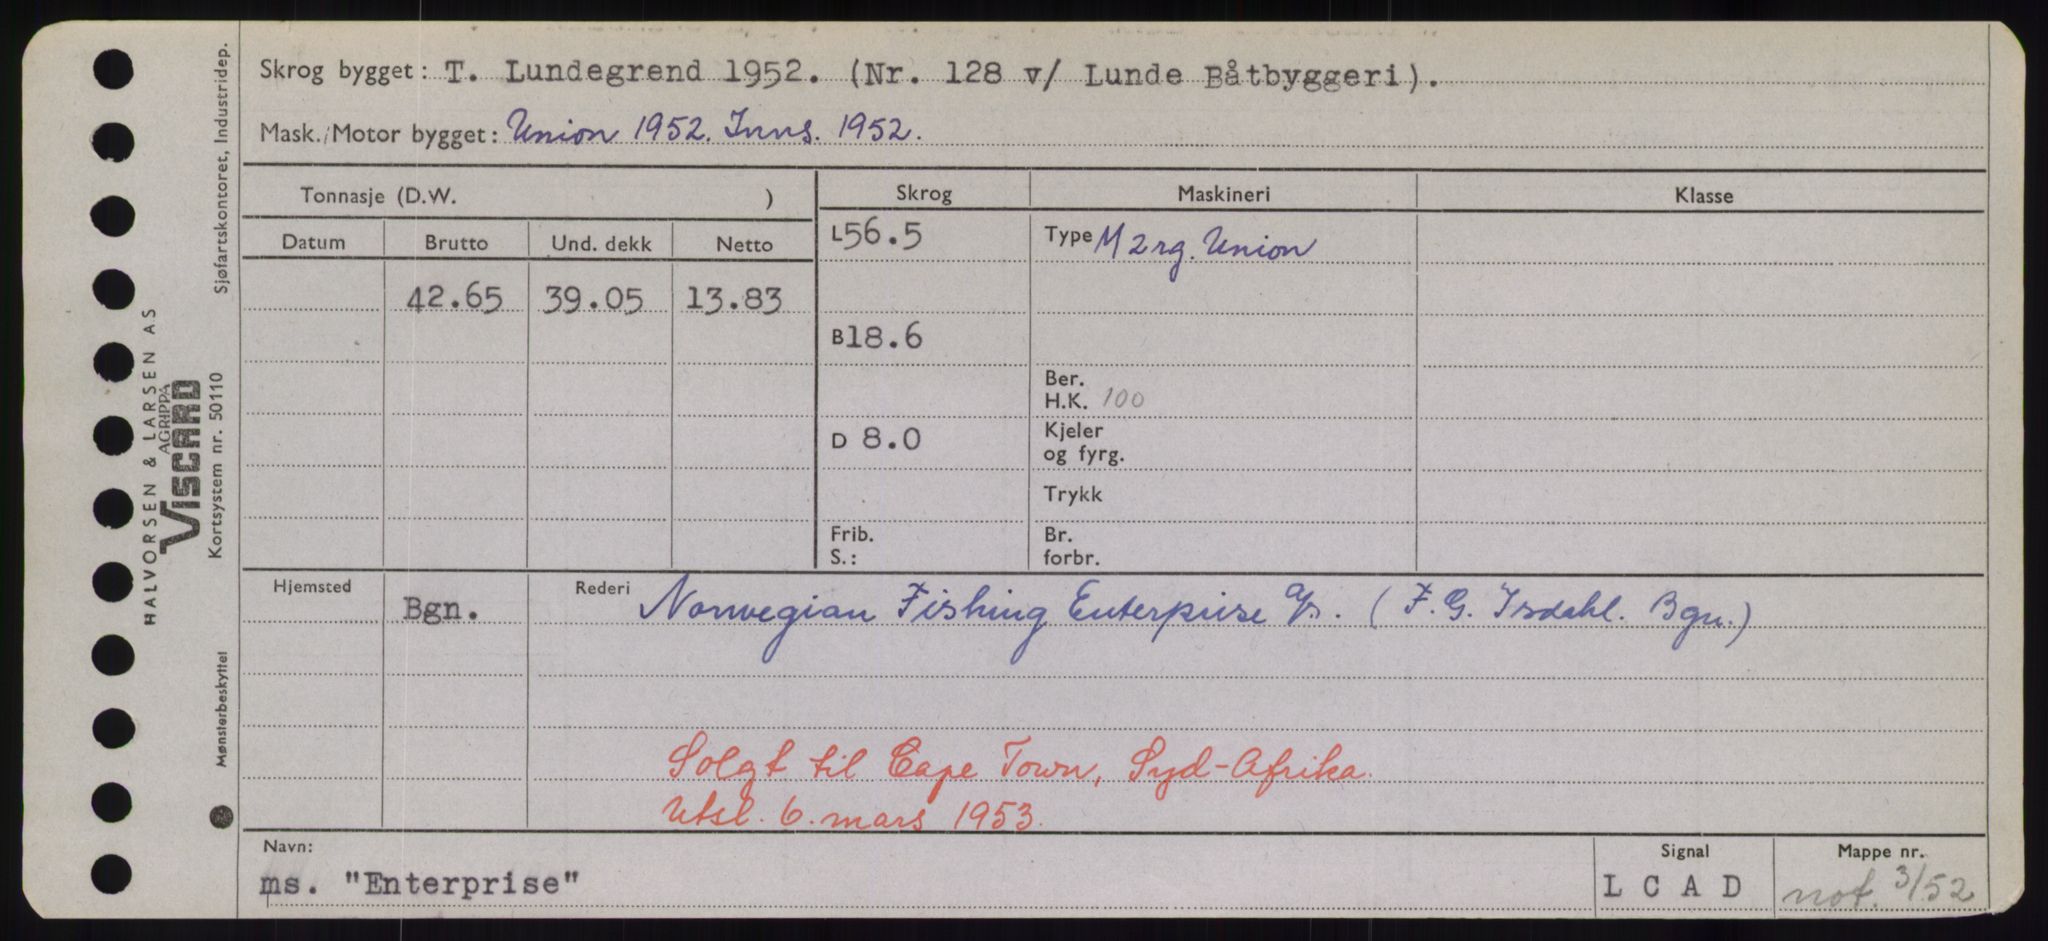 Skrog bygget: T. Lundegrend 1952. (Nr. 128 v/ Lunde Båtbyggeri).
Mask./Motor bygget: Union 1952. Inns. 1952.
Tonnasje (D.W. )
Skrog
Maskineri
Klasse
Datum
Brutto
Und. dekk
Netto
L 56.5
Type M 2 rg. Union
42.65
39.05
13.83
B 18.6
Ber.
H.K. 100
D 8.0
Kjeler
og fyrg.
Trykk
Frib.
S.:
Br.
forbr.
Hjemsted
Bgn.
Rederi
Norwegian Fishing Enterprise A/s. (F. G. Isdahl. Bgn.)
Solgt til Cape Town, Syd-Afrika.
Utsl. 6. mars 1953.
Navn:
ms. "Enterprise"
Signal
L C A D
Mappe nr.
not. 3/52
Sjøfartskontoret, Industridep.
HALVORSEN & LARSEN AS
AGRIPPA
VISCARD
Kortsystem nr. 50110
Mønsterbeskyttet